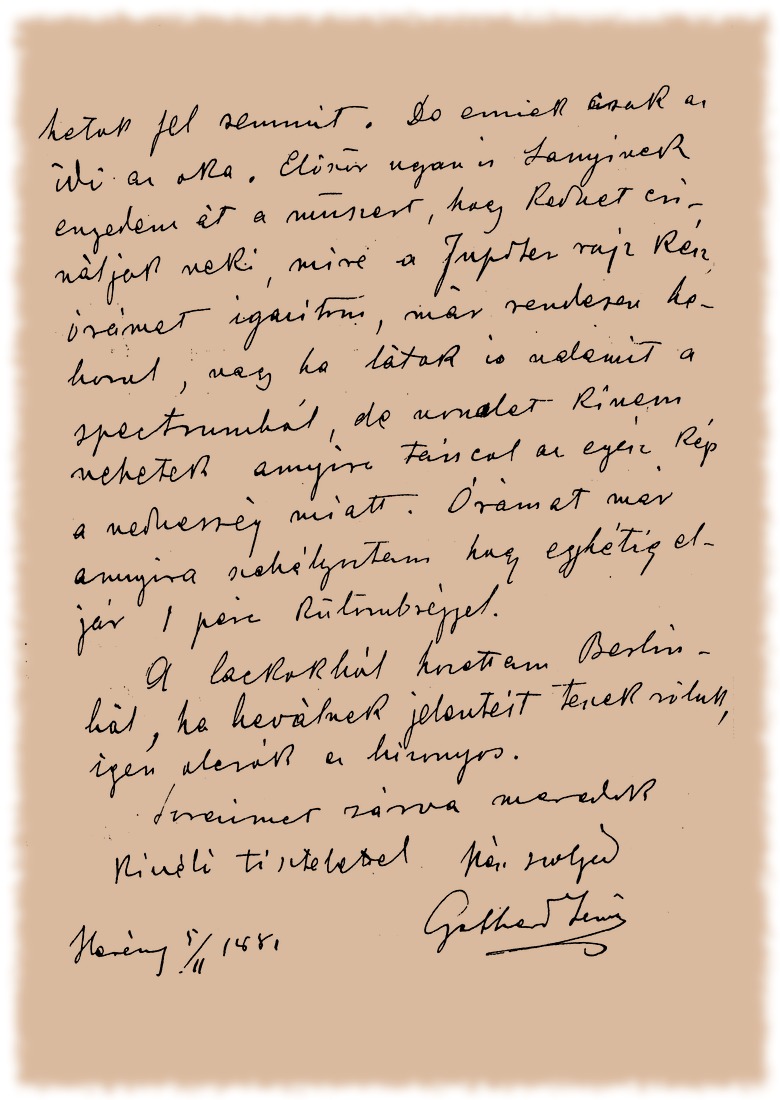 hetek fel semmit. De ennek csak az
idő az oka. Először ugyan is Lamyinek
engedem át a műszert, hogy Rednet csi-
náljak neki, mire a Jupiter rajz kész,
órámat igazítom, már rendesen be-
borul, vagy ha látok is valamit a
spectrumból, de vonalat ki nem
vehetek annyira táncol az egész kép
a nedvesség miatt. Órámat már
annyira szabályoztam hogy egy hétig el-
jár 1 perc külömbséggel.
A lackokból hozattam Berlin-
ből, ha beválnek jelentést teszek róluk,
igen olcsók ez bizonyos.
Soraimet zárva maradok
Kiváló tisztelettel kész szolgád
Gothard Jenő
Herény 5/II 1881